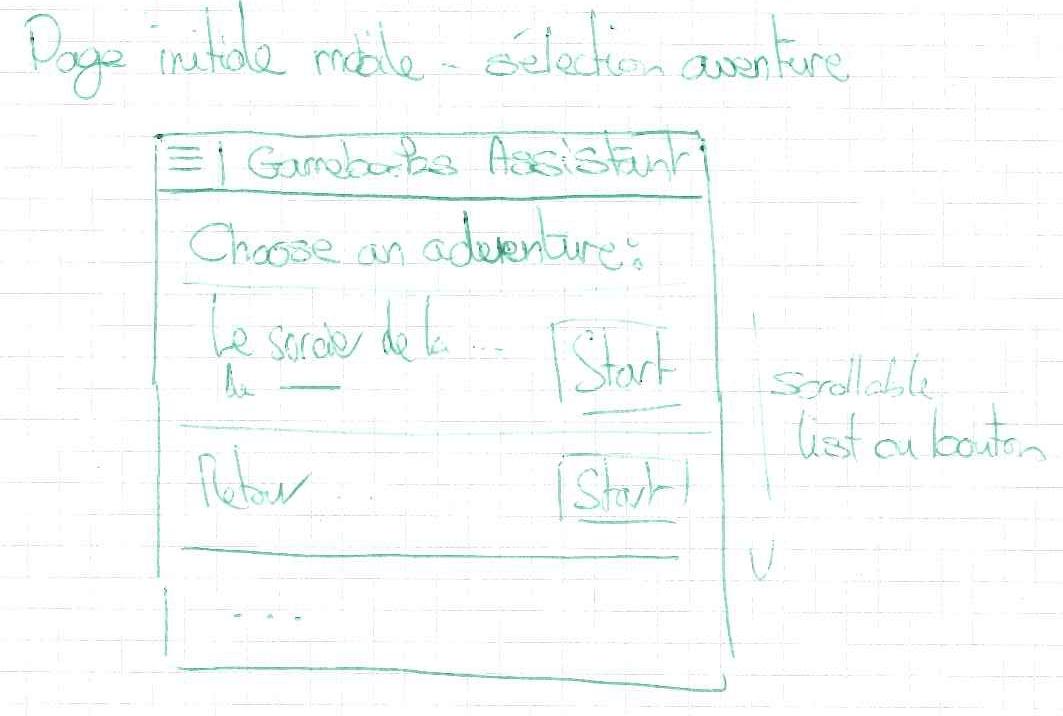 Page initiale mobile - sélection aventure
Gamebooks Assistant
Choose an adventure:
Le sorcier de la ...
Start
Retour ...
Start
...
scrollable
list ou bouton